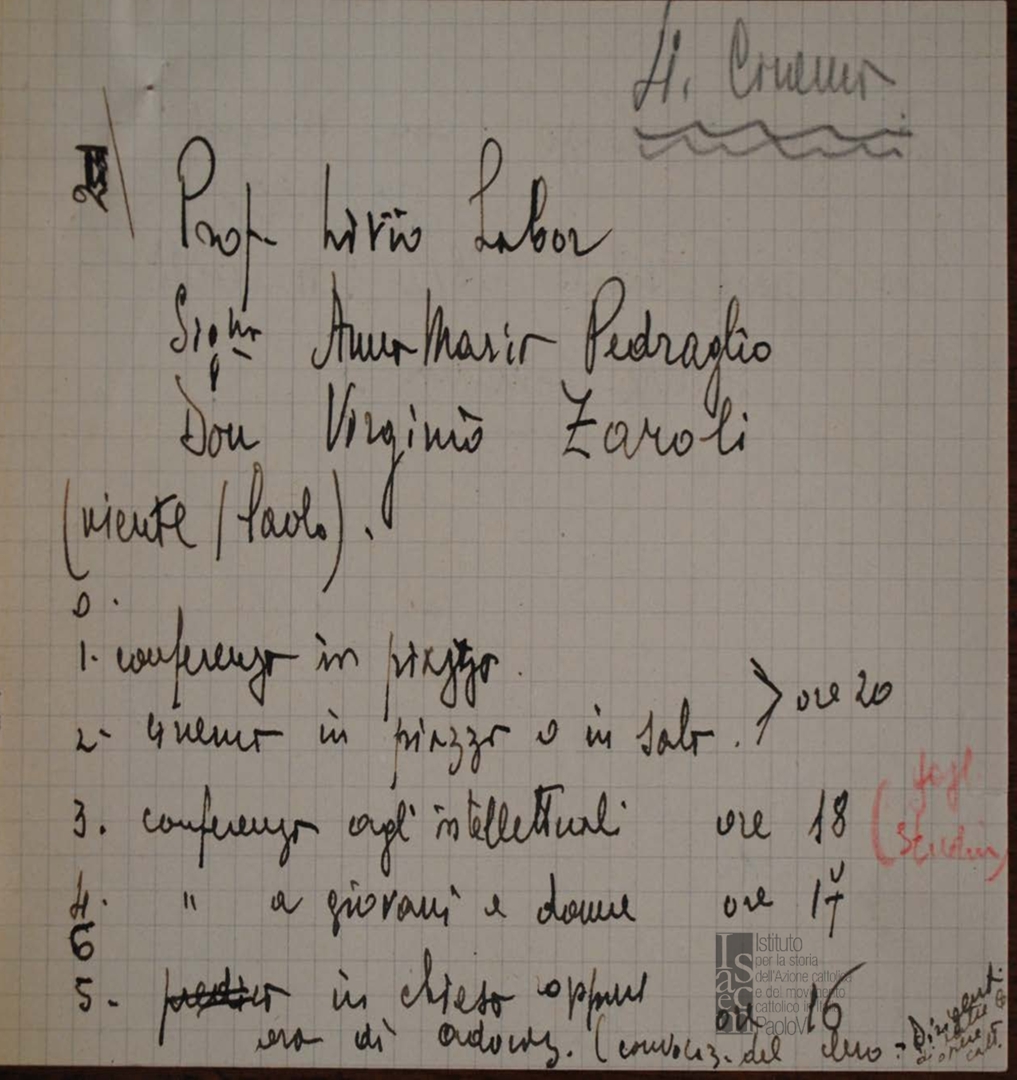 4. Cinema
2
Prof. Livio Labor
Sig.na Anna Maria Pedraglio
Don Virginio Zaroli
(niente / Paolo).
0.
1. conferenza in piazza.
2- cinema in piazza o in sala. > ore 20
3. conferenza agli intellettuali ore 18
(fogl. studm
4. " a giovani e donne ore 17
6
5. in chiesa oppure ore 16
ora di adoraz. (convocaz. del clero - Dirigenti
di opere catt.
Istituto
per la storia
dell'Azione cattolica
e del movimento
cattolico in
PaoloVI
Isacem